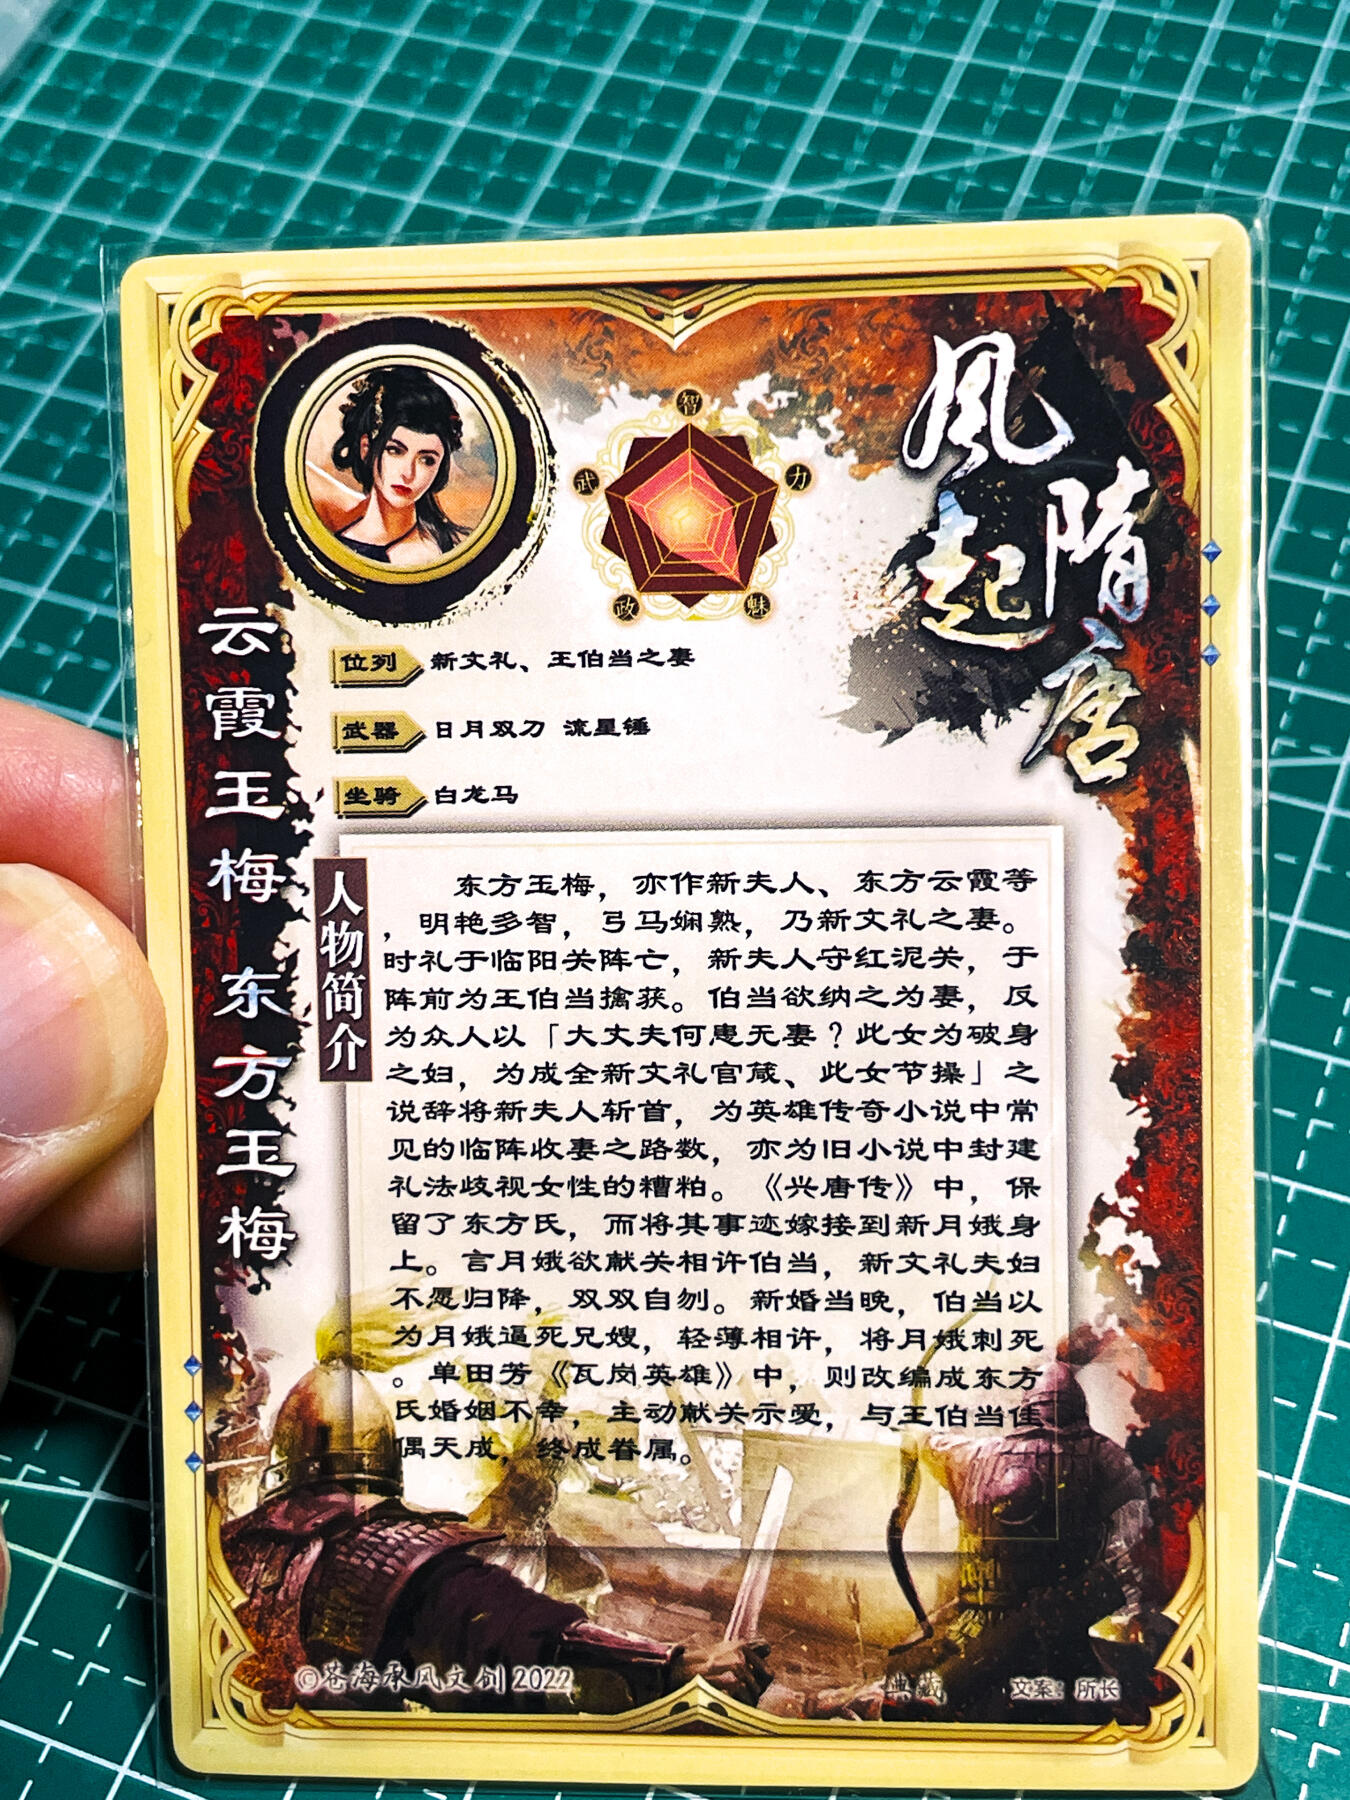 风起
隋唐
智
武
力
政
魅
云霞玉梅 东方玉梅
位列 新文礼、王伯当之妻
武器 日月双刀 流星锤
坐骑 白龙马
人物简介
东方玉梅，亦作新夫人、东方云霞等
，明艳多智，弓马娴熟，乃新文礼之妻。
时礼于临阳关阵亡，新夫人守红泥关，于
阵前为王伯当擒获。伯当欲纳之为妻，反
为众人以「大丈夫何患无妻？此女为破身
之妇，为成全新文礼官箴、此女节操」之
说辞将新夫人斩首，为英雄传奇小说中常
见的临阵收妻之路数，亦为旧小说中封建
礼法歧视女性的糟粕。《兴唐传》中，保
留了东方氏，而将其事迹嫁接到新月娥身
上。言月娥欲献关相许伯当，新文礼夫妇
不愿归降，双双自刎。新婚当晚，伯当以
为月娥逼死兄嫂，轻薄相许，将月娥刺死
。单田芳《瓦岗英雄》中，则改编成东方
氏婚姻不幸，主动献关示爱，与王伯当佳
偶天成，终成眷属。
©苍海承风文创 2022
典藏
文案：所长